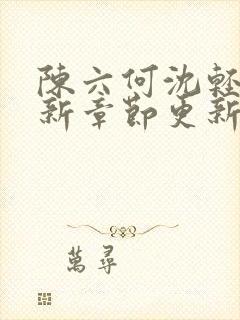 陳六何沈輕
新章節更新
萬尋